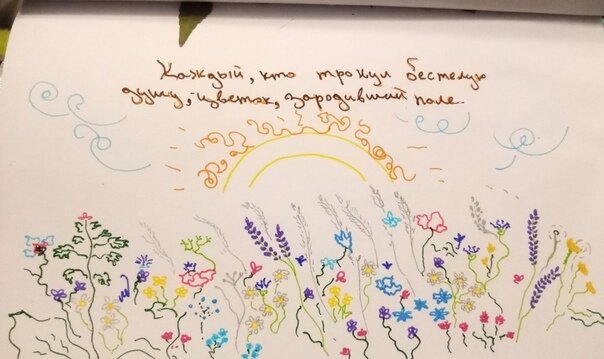 Каждый, кто тронул бестелую
душу, цветок, зародивший поле.